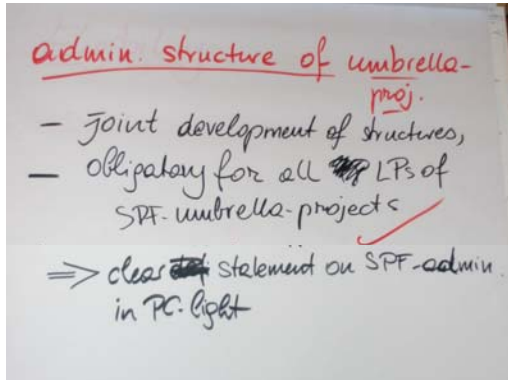 admin. structure of umbrella-
proj.
- joint development of structures,
- obligatory for all LPs of
SPF-umbrella-projects
=> clear statement on SPF-admin.
in PC-light